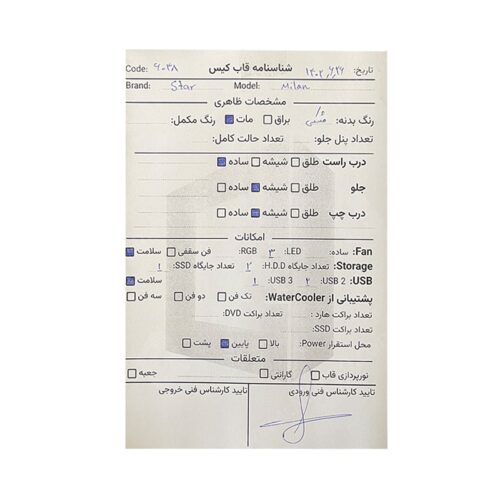 شناسنامه قاب کیس
تاریخ: ۱۴۰۲,۶,۲۶
Code: ۶۰۳۸
Brand: Star Model: Milan
مشخصات ظاهری
رنگ بدنه: مشکی براق مات رنگ مکمل:
تعداد پنل جلو: تعداد حالت کامل:
درب راست طلق شیشه ساده
جلو طلق شیشه ساده
درب چپ طلق شیشه ساده
امکانات
Fan: ساده: LED: ۳ RGB: فن سقفی سلامت
Storage تعداد جایگاه H.D.D: ۲ تعداد جایگاه SSD: ۱
USB USB 2: ۲ USB 3: ۱ سلامت
پشتیبانی از WaterCooler: تک فن دو فن سه فن
تعداد براکت هارد: تعداد براکت DVD:
تعداد براکت SSD:
محل استقرار Power: بالا پایین پشت
متعلقات
نورپردازی قاب گارانتی جعبه
تایید کارشناس فنی ورودی تایید کارشناس فنی خروجی